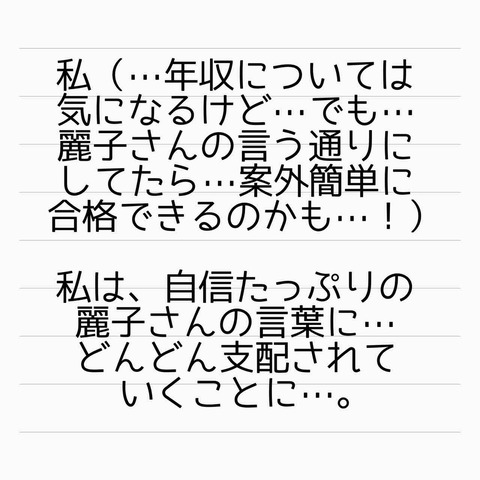 私（…年収については
気になるけど…でも…
麗子さんの言う通りに
してたら…案外簡単に
合格できるのかも…！）
私は、自信たっぷりの
麗子さんの言葉に…
どんどん支配されて
いくことに…。